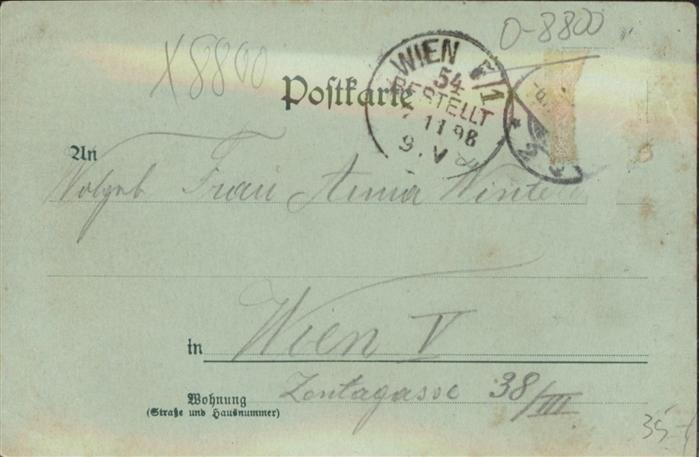 O-8800
X8800
WIEN 5/1
54
BESTELLT
7 11 98
9. V
Postkarte
An
Wolgeb Frau Anna Winter
in Wien V
Wohnung Zentagasse 38/III
(Straße und Hausnummer)
35-